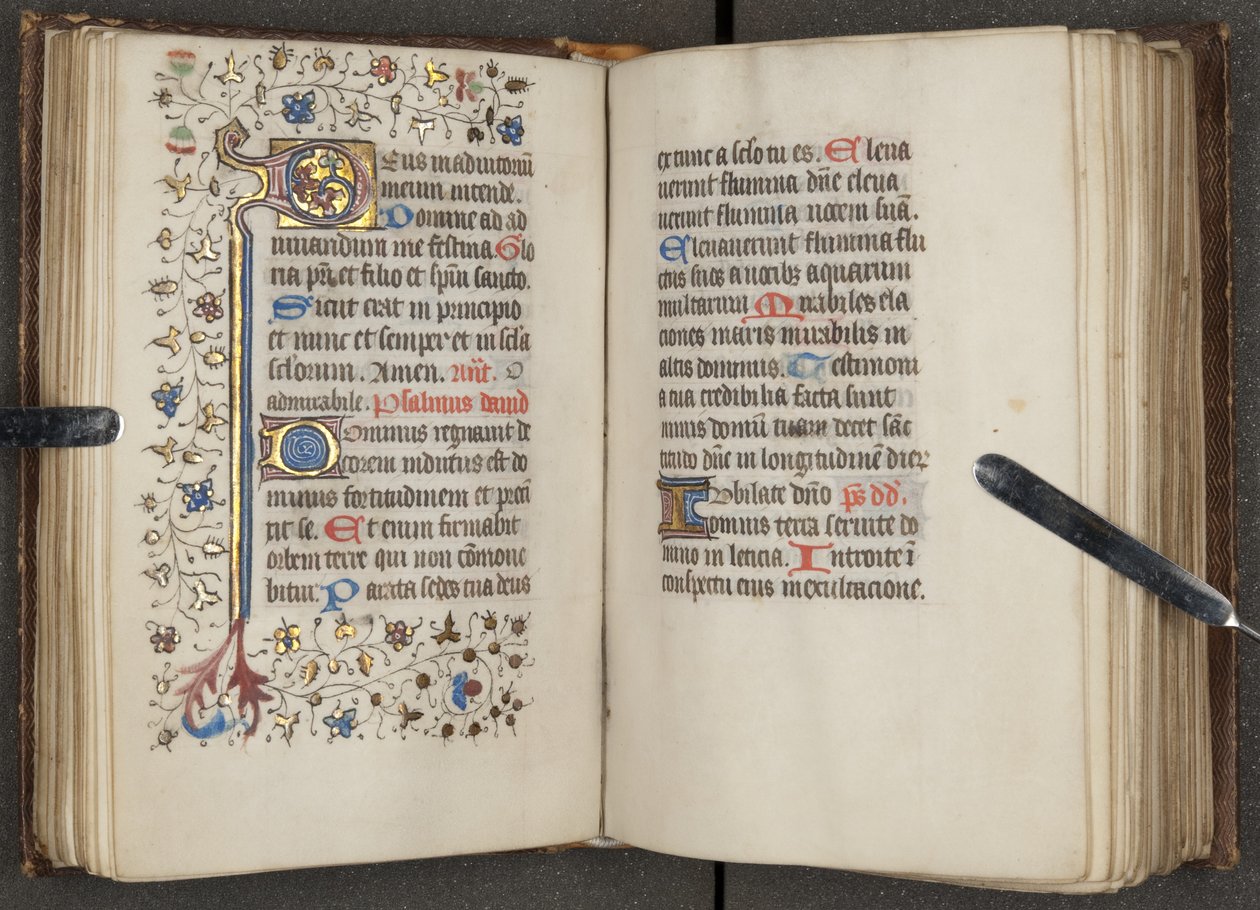 Deus in adiutoriū
meum intende.
Domine ad ad
iuuandum me festina. Glo
ria pr̄i et filio et sp̄iu sancto.
Sicut erat in principio
et nunc et semper et in scl̄a
scl̄orum. Amen. Ant̄. O
admirabile. Psalmus dauid
Dominus regnauit de
corem indutus est do
minus fortitudinem et preci
xit se. Et enim firmabit
orbem terre qui non cōmoue
bitur. Parata sedes tua deus
ex tunc a sclo tu es. Eleua
uerunt flumina dn̄e eleua
uerunt flumina uocem suā.
Eleuauerunt flumina flu
ctus suos a uocibꝫ aquarum
multarum Mirabiles ela
ciones maris mirabilis in
altis dominus. Testimoni
a tua credibilia facta sunt
nimis domū tuam decet sāc
titudo dn̄e in longitudinē dieꝝ
Iubilate dn̄o ps̄ dd̄.
omnis terra seruite do
mino in leticia. Introite ī
conspectu eius in exultacione.